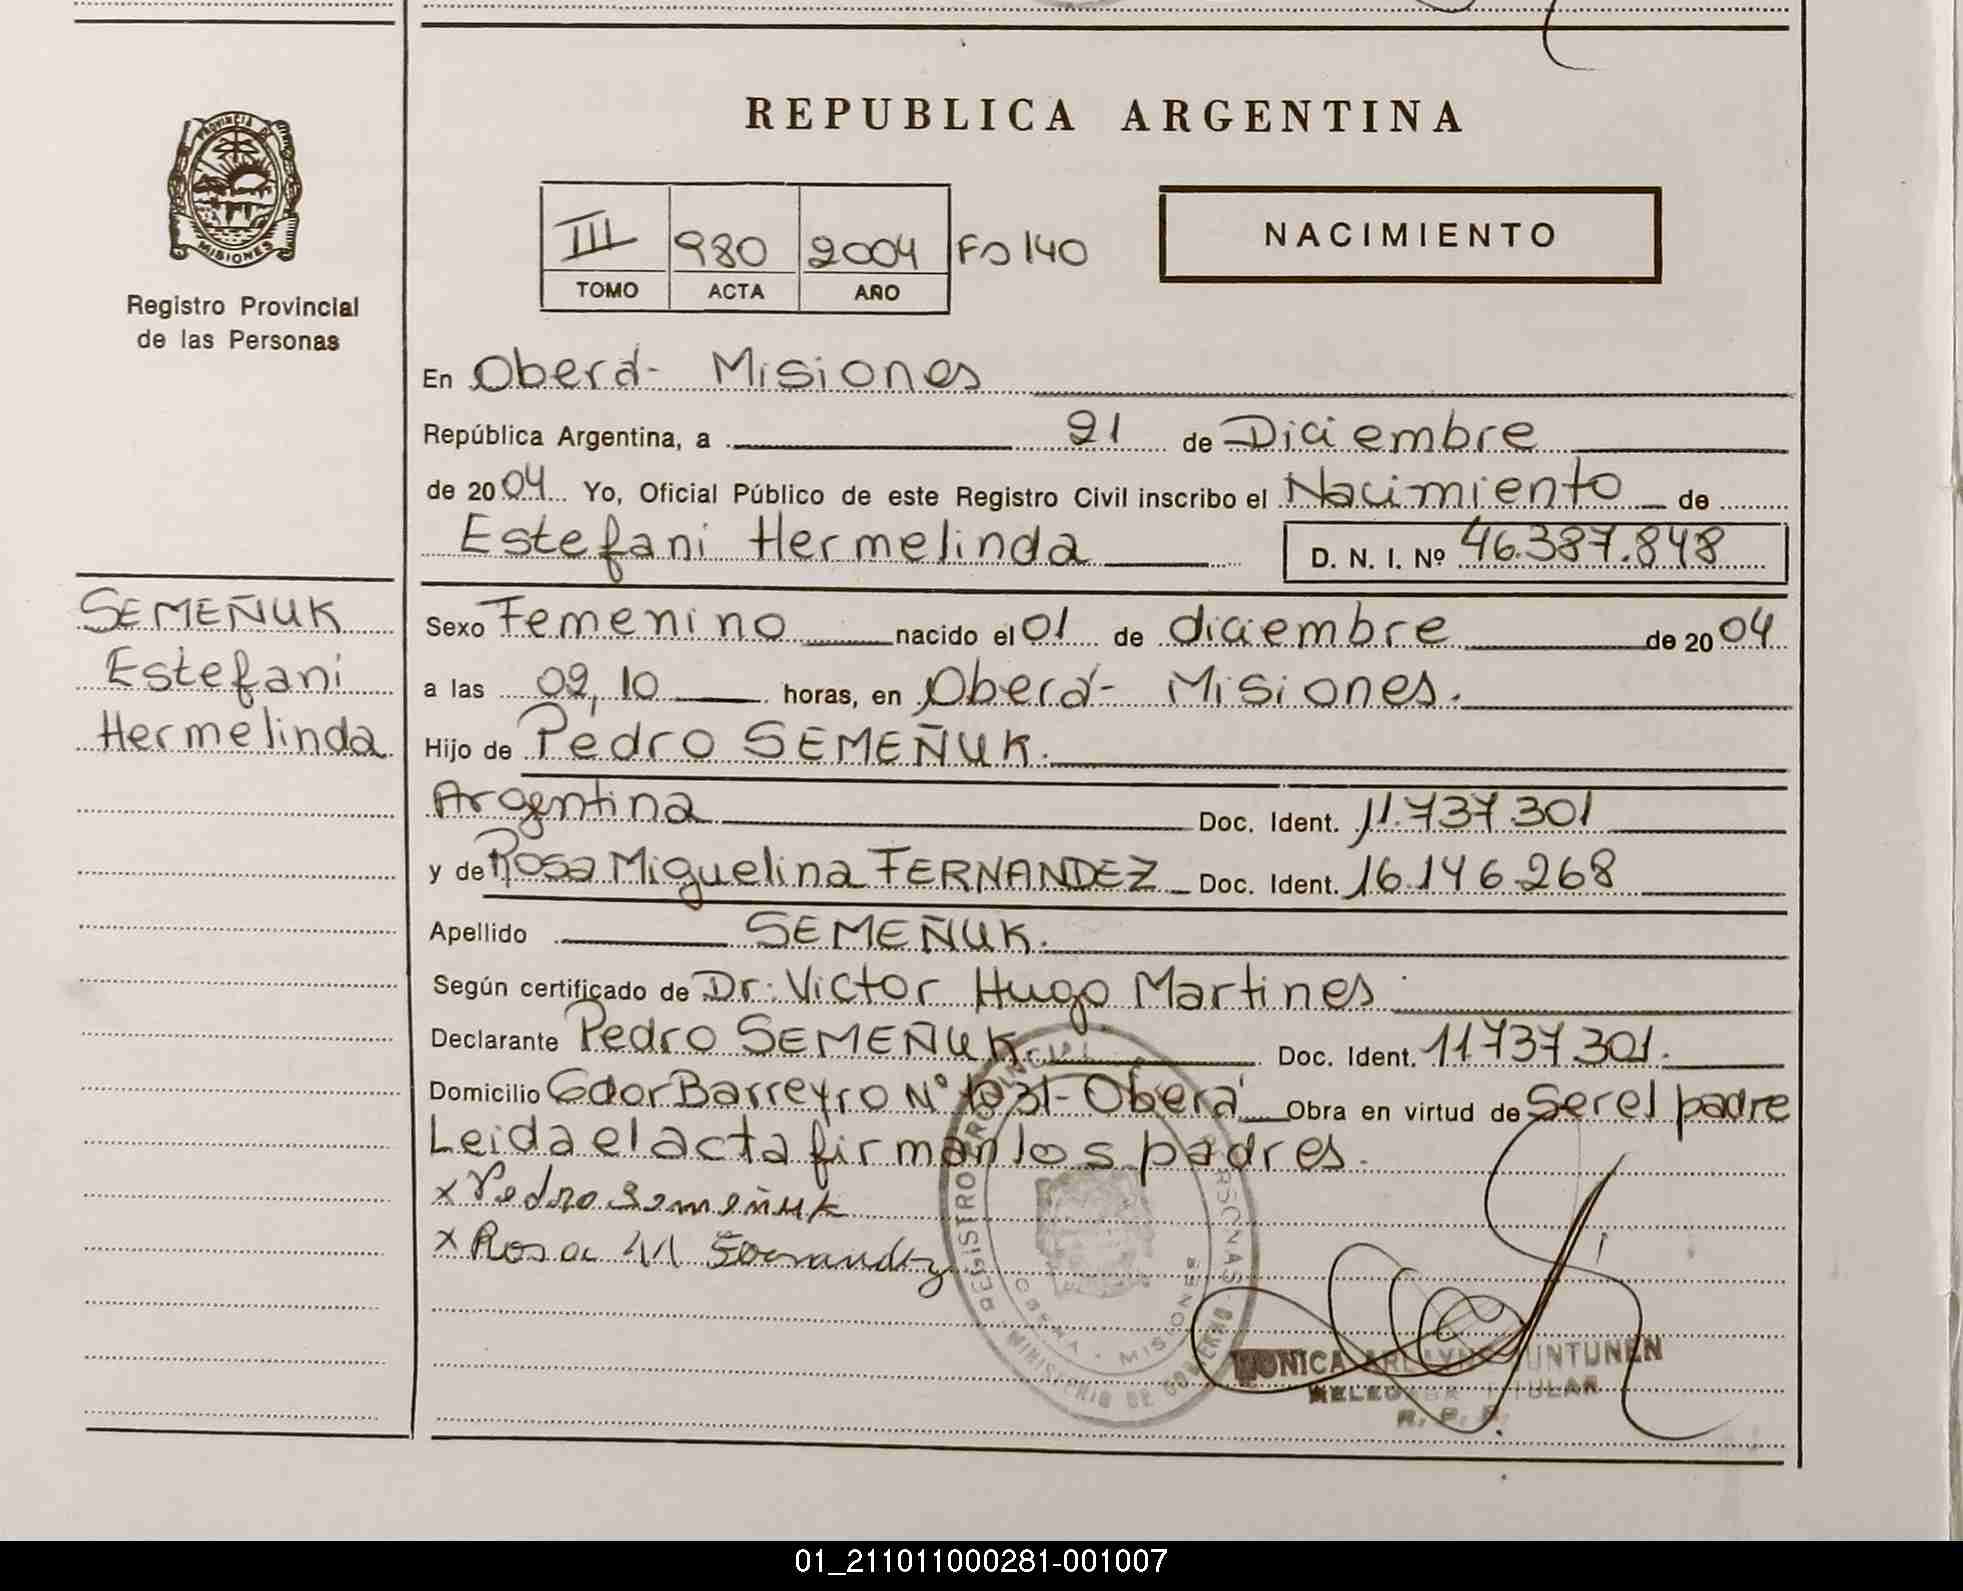 REPUBLICA ARGENTINA
PROVINCIA DE
MISIONES
Registro Provincial
de las Personas
III 980 2004 Fo 140
TOMO ACTA AÑO
NACIMIENTO
En Oberá - Misiones
República Argentina, a 21 de Diciembre
de 2004 Yo, Oficial Público de este Registro Civil inscribo el Nacimiento de
Estefani Hermelinda D. N. I. Nº 46.387.848
SEMEÑUK
Estefani
Hermelinda
Sexo Femenino nacido el 01 de diciembre de 2004
a las 09,10 horas, en Oberá - Misiones.
Hijo de Pedro SEMEÑUK.
Argentina Doc. Ident. 11.737.301
y de Rosa Miguelina FERNANDEZ Doc. Ident. 16.146.268
Apellido SEMEÑUK.
Según certificado de Dr. Victor Hugo Martines
Declarante Pedro SEMEÑUK. Doc. Ident. 11.737.301.
Domicilio Gdor Barreyro Nº 1031 - Oberá Obra en virtud de Ser el padre
Leida el acta firman los padres.
x Pedro Semeñuk
x Rosa M Fernandez
REGISTRO PROVINCIAL PERSONAS
OBERA - MISIONES
MINISTERIO DE GOBIERNO
MONICA UNTUNEN
TITULAR
R. P. P.
01_211011000281-001007